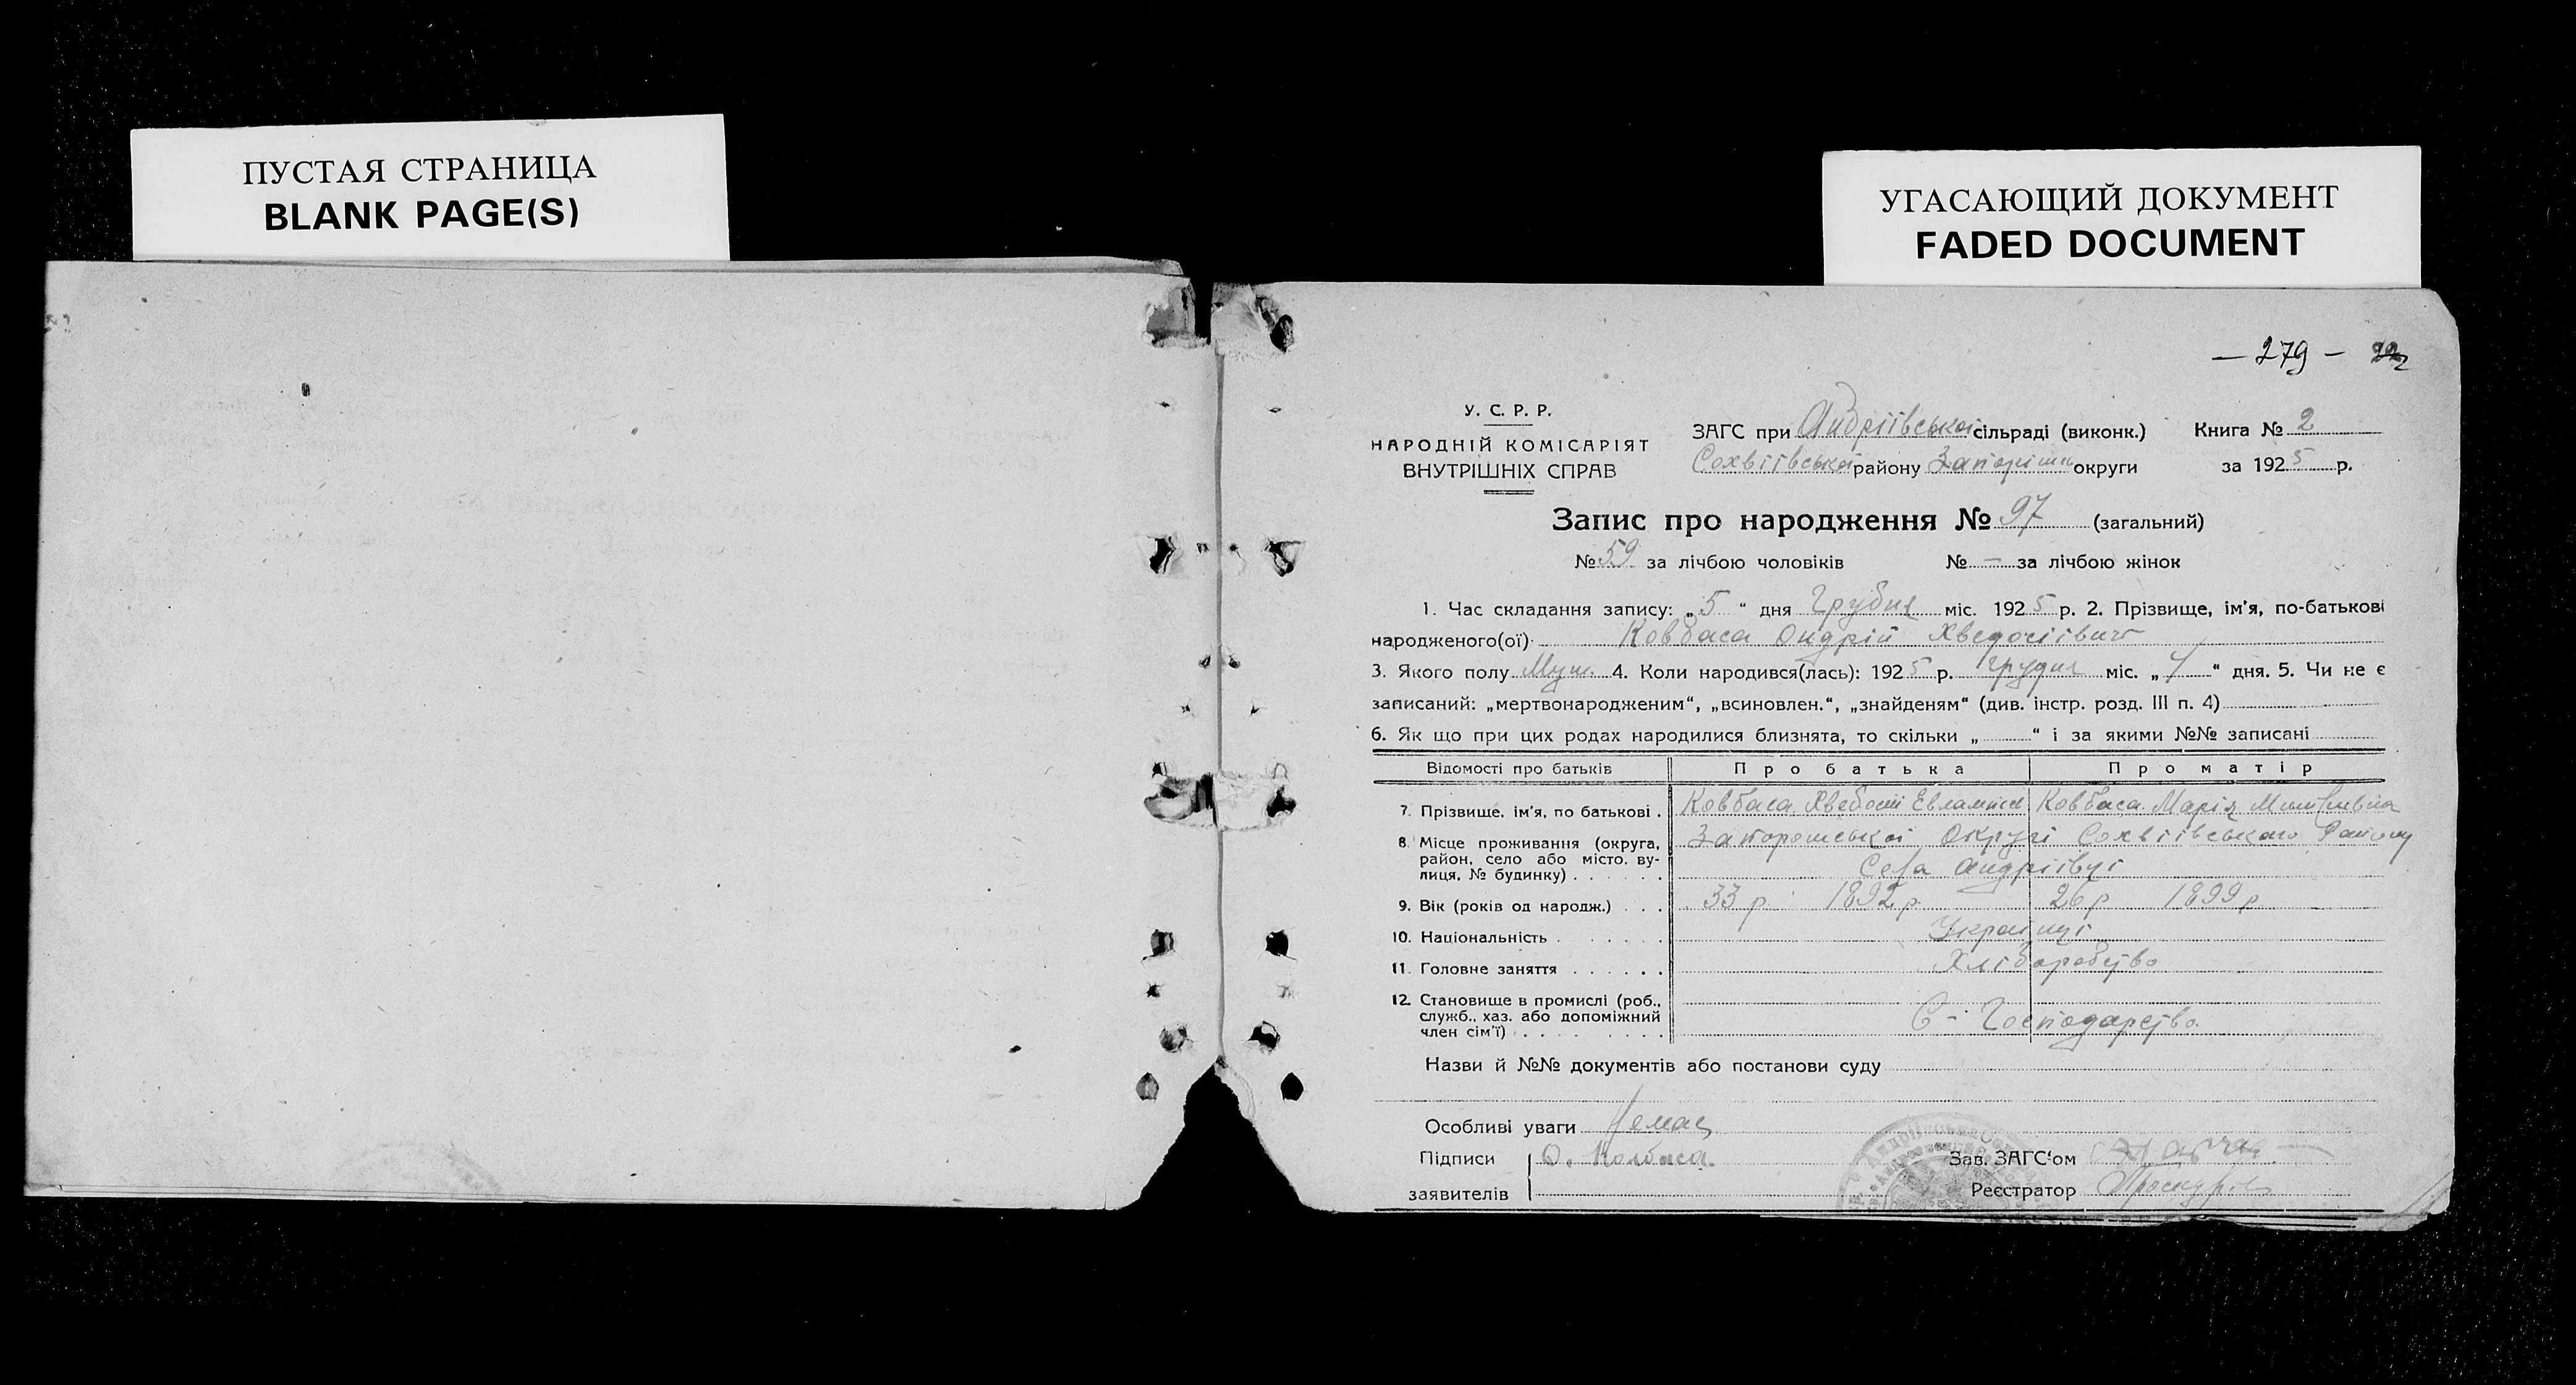 ПУСТАЯ СТРАНИЦА
BLANK PAGE(S)
УГАСАЮЩИЙ ДОКУМЕНТ
FADED DOCUMENT
— 279 —
У. С. Р. Р.
НАРОДНІЙ КОМІСАРІЯТ
ВНУТРІШНІХ СПРАВ
ЗАГС при Андріївської сільраді (виконк.) Книга № 2
Сохвіївської району Запоріжн округи за 1925 р.
Запис про народження № 97 (загальний)
№ 59 за лічбою чоловіків № — за лічбою жінок
1. Час складання запису: „5“ дня Грудня міс. 1925 р. 2. Прізвище, ім'я, по-батькові
народженого(ої) Ковбаса Ондрій Хведосіївич
3. Якого полу Муж. 4. Коли народився(лась): 1925 р. грудня міс. „ “ дня. 5. Чи не є
записаний: „мертвонародженим“, „всиновлен.“, „знайденям“ (див. інстр. розд. III п. 4)
6. Як що при цих родах народилися близнята, то скільки „ “ і за якими №№ записані
Відомості про батьків Про батька Про матір
7. Прізвище, ім'я, по батькові . Ковбаса Хведосій Евлампієв Ковбаса Марія
8. Місце проживання (округа, район, село або місто, ву-лиця, № будинку) . . . . . . Запорожської Округі Сохвіївського Району
Села Андріївці
9. Вік (років од народж.) . . . 33 р 1892 р 26 р 1899 р
10. Національність . . . . . . Українці
11. Головне заняття . . . . . . Хліборобство
12. Становище в промислі (роб., служб., хаз. або допоміжний член сім'ї) . . . . . . . . . С-Господарство
Назви й №№ документів або постанови суду
Особливі уваги Немац
Підписи О. Колбаса Зав. ЗАГС'ом
заявителів Реєстратор